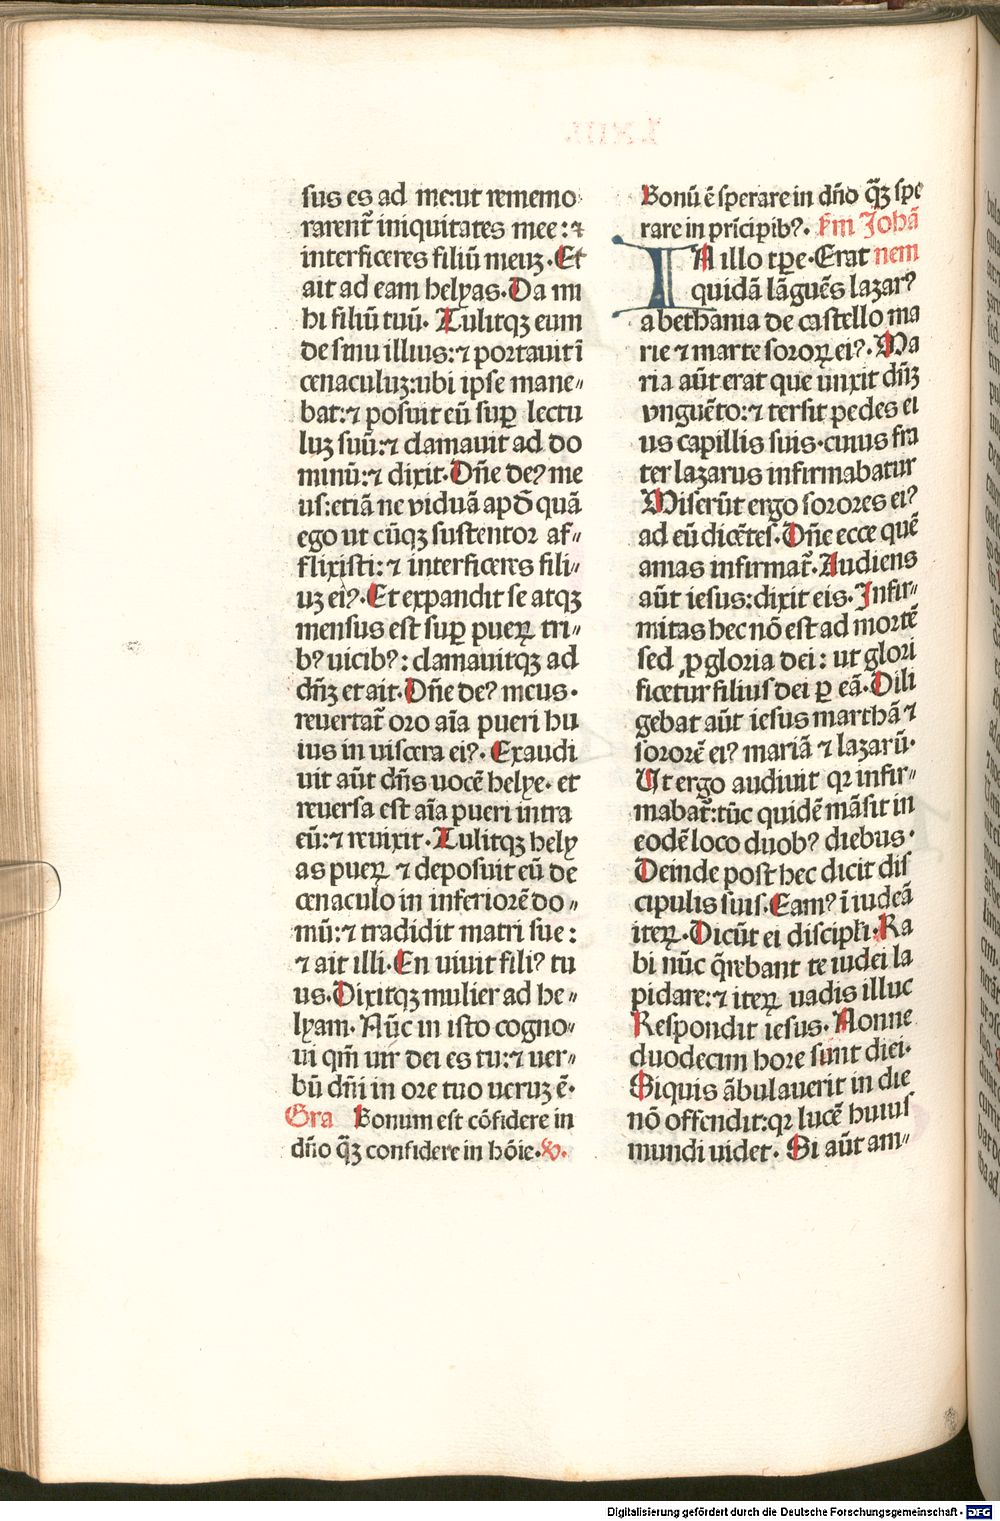 sus es ad me:ut rememo
rarent̃ iniquitates mee:⁊
interficeres filiũ meuʒ. Et
ait ad eam helyas. Da mi
hi filiũ tuũ. Tulitqʒ eum
de sinu illius:⁊ portauit ĩ
cenaculuʒ:ubi ipse mane⸗
bat:⁊ posuit eũ suꝑ lectu
luʒ suũ:⁊ clamauit ad do
minũ:⁊ dixit. Dñe deꝰ me
us:etiã ne viduã apď quã
ego ut cũqʒ sustentor af⸗
flixisti:⁊ interficeres fili⸗
uʒ eiꝰ. Et expandit se atqʒ
mensus est suꝑ pueꝝ tri⸗
bꝰ uicibꝰ: clamauitqʒ ad
dñʒ et ait. Dñe deꝰ meus.
reuertat̃ oro aĩa pueri hu
ius in uiscera eiꝰ. Exaudi
uit aũt dñs uocẽ helye. et
reuersa est aĩa pueri intra
eũ:⁊ reuixit. Tulitqʒ hely
as pueꝝ ⁊ deposuit eũ de
cenaculo in inferiorẽ do⸗
mũ:⁊ tradidit matri sue:
⁊ ait illi. En uiuit filiꝰ tu
us. Dixitqʒ mulier ad he⸗
lyam. Nũc in isto cogno⸗
ui qm̃ uir dei es tu:⁊ uer⸗
bũ dñi in ore tuo ueruʒ ẽ.
Gra Bonum est cõfidere in
dño q̃ʒ confidere in hõie. V.
Bonũ ẽ sperare in dño q̃ʒ spe
rare in prĩcipibꝰ. s̃m Johã
nem
IN illo tꝑe. Erat
quidã lãguẽs lazarꝰ
a bethania de castello ma
rie ⁊ marte soroꝝ eiꝰ. Ma
ria aũt erat que unxit dñʒ
vnguẽto:⁊ tersit pedes ei
us capillis suis. cuius fra
ter lazarus infirmabatur
Miserũt ergo sorores eiꝰ
ad eũ dicẽtes. Dñe ecce quẽ
amas infirmat̃. Audiens
aũt iesus:dixit eis. Infir⸗
mitas hec nõ est ad mortẽ
sed ꝓ gloria dei: ut glori
ficetur filius dei ꝑ eã. Dili
gebat aũt iesus marthã ⁊
sororẽ eiꝰ mariã ⁊ lazarũ.
Ut ergo audiuit qꝛ infir⸗
mabat̃:tũc quidẽ mãsit in
eodẽ loco duobꝰ diebus.
Deinde post hec dicit dis
cipulis suis. Eamꝰ ĩ iudeã
iteꝝ. Dicũt ei discipli. Ra
bi nũc q̃rebant te iudei la
pidare:⁊ iteꝝ uadis illuc
Respondit iesus. Nonne
duodecim hore sunt diei.
Siquis ãbulauerit in die
nõ offendit:qꝛ lucẽ huius
mundi uidet. Si aũt am⸗
Digitalisierung gefördert durch die Deutsche Forschungsgemeinschaft - DFG